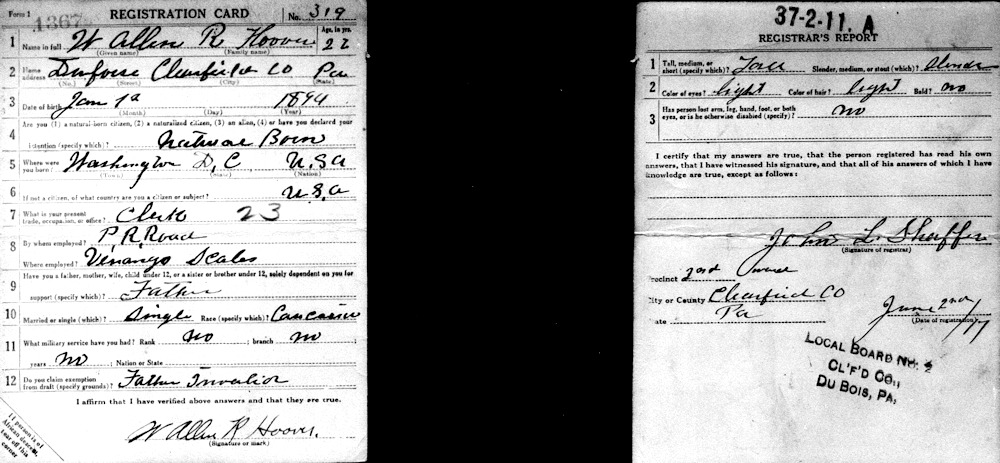 Form 1 REGISTRATION CARD No. 319
1367
1 Name in full W Allen R Hoover Age, in yrs. 22
(Given name) (Family name)
2 Home address Clearfield Co Pa
(No.) (Street) (City) (State)
3 Date of birth Jan 1st 1894
(Month) (Day) (Year)
4 Are you (1) a natural-born citizen, (2) a naturalized citizen, (3) an alien, (4) or have you declared your
intention (specify which)? Natural Born
5 Where were you born? Washington D, C U.S.A
(Town) (State) (Nation)
6 If not a citizen, of what country are you a citizen or subject? U.S.A
7 What is your present trade, occupation, or office? Clerk 23
8 By whom employed? P. R. Road
Where employed? Venango Scales
9 Have you a father, mother, wife, child under 12, or a sister or brother under 12, solely dependent on you for
support (specify which)? Father
10 Married or single (which)? Single Race (specify which)? Caucasian
11 What military service have you had? Rank no ; branch no ;
years no ; Nation or State
12 Do you claim exemption from draft (specify grounds)? Father Invalid
I affirm that I have verified above answers and that they are true.
W Allen R Hoover.
(Signature or mark)
If person is of
African descent,
tear off this
corner
37-2-11. A
REGISTRAR'S REPORT
1 Tall, medium, or short (specify which)? Tall Slender, medium, or stout (which)? Slender
2 Color of eyes? Light Color of hair? Light Bald? No
3 Has person lost arm, leg, hand, foot, or both
eyes, or is he otherwise disabled (specify)? No
I certify that my answers are true, that the person registered has read his own
answers, that I have witnessed his signature, and that all of his answers of which I have
knowledge are true, except as follows:
John L. Shaffer
(Signature of registrar)
Precinct 2nd
City or County Clearfield Co
State Pa
June 2nd /17
(Date of registration)
LOCAL BOARD No. 2
CL'F'D CO.,
DU BOIS, PA.